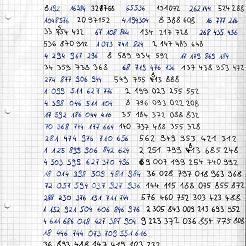 8192 16384 32768 65536 131072 262144 524288
1048576 2097152 4194304 8388608 16 777 216
33 554 432 67 108 864 134 217 728 268 435 456
536 870 912 1 073 741 824 2 147 483 648
4 294 967 296 8 589 934 592 17 179 869 184
34 359 738 368 68 719 476 736 137 438 953 472
274 877 906 944 549 755 813 888
1 099 511 627 776 2 199 023 255 552
4 398 046 511 104 8 796 093 022 208
17 592 186 044 416 35 184 372 088 832
70 368 744 177 664 140 737 488 355 328
281 474 976 710 656 562 949 953 421 312
1 125 899 906 842 624 2 251 799 813 685 248
4 503 599 627 370 496 9 007 199 254 740 992
18 014 398 509 481 984 36 028 797 018 963 968
72 057 594 037 927 936 144 115 188 075 855 872
288 230 376 151 711 744 576 460 752 303 423 488
1 152 921 504 606 846 976 2 305 843 009 213 693 952
4 611 686 018 427 387 904 9 223 372 036 854 775 808
18 446 744 073 709 551 616
36 893 488 147 419 103 232